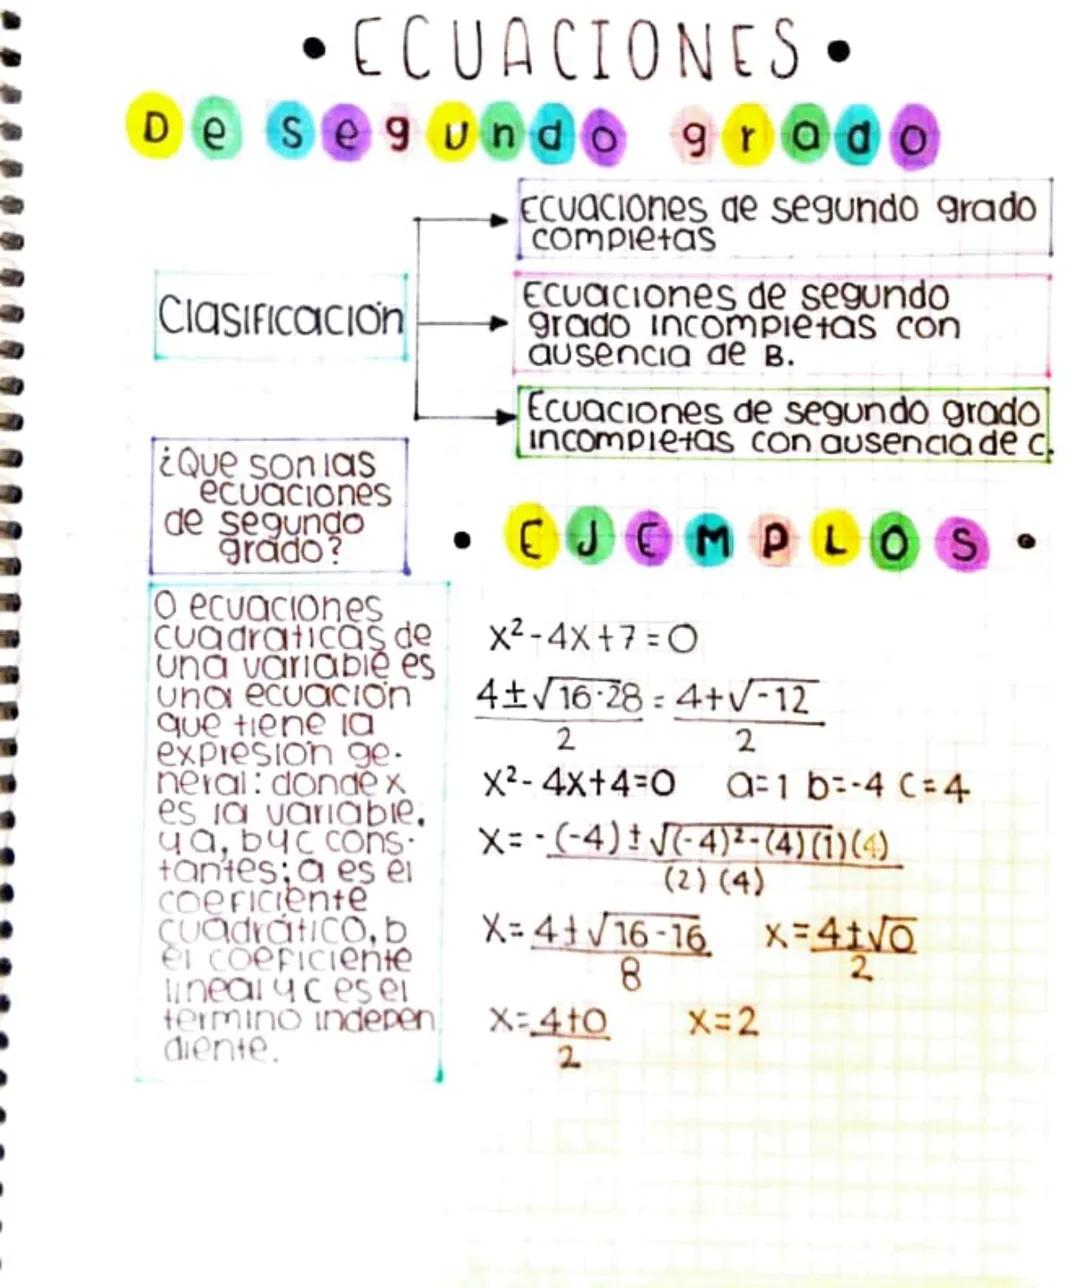 • ECUACIONES •
De segundo grado
Clasificación
Ecuaciones de segundo grado
completas
Ecuaciones de segundo
grado incompletas con
ausencia de B.
Ecuaciones de segundo grado
incompletas con ausencia de C.
¿Que son las
ecuaciones
de segundo
grado?
O ecuaciones
cuadraticas de
una variable es
una ecuación
que tiene la
expresión ge-
neral: donde x
es la variable,
y a, b y c cons-
tantes; a es el
coeficiente
cuadrático, b
el coeficiente
lineal y c es el
termino indepen
diente.
• EJEMPLOS •
x²-4x+7=0
4±√16-28 = 4+√-12
2 2
x²-4x+4=0 a=1 b=-4 c=4
x= -(-4)±√(-4)²-(4)(1)(4)
(2)(4)
x= 4±√16-16 x=4±√0
8 2
x= 4±0 x=2
2